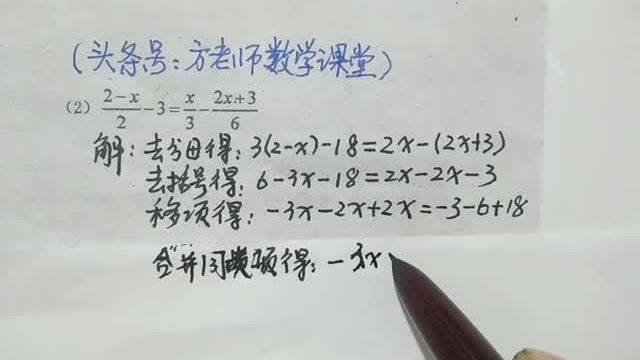 (头条号:方老师数学课堂)
(2) \frac{2-x}{2}-3=\frac{x}{3}-\frac{2x+3}{6}
解:去分母得:3(2-x)-18=2x-(2x+3)
去括号得:6-3x-18=2x-2x-3
移项得:-3x-2x+2x=-3-6+18
合并同类项得:-3x